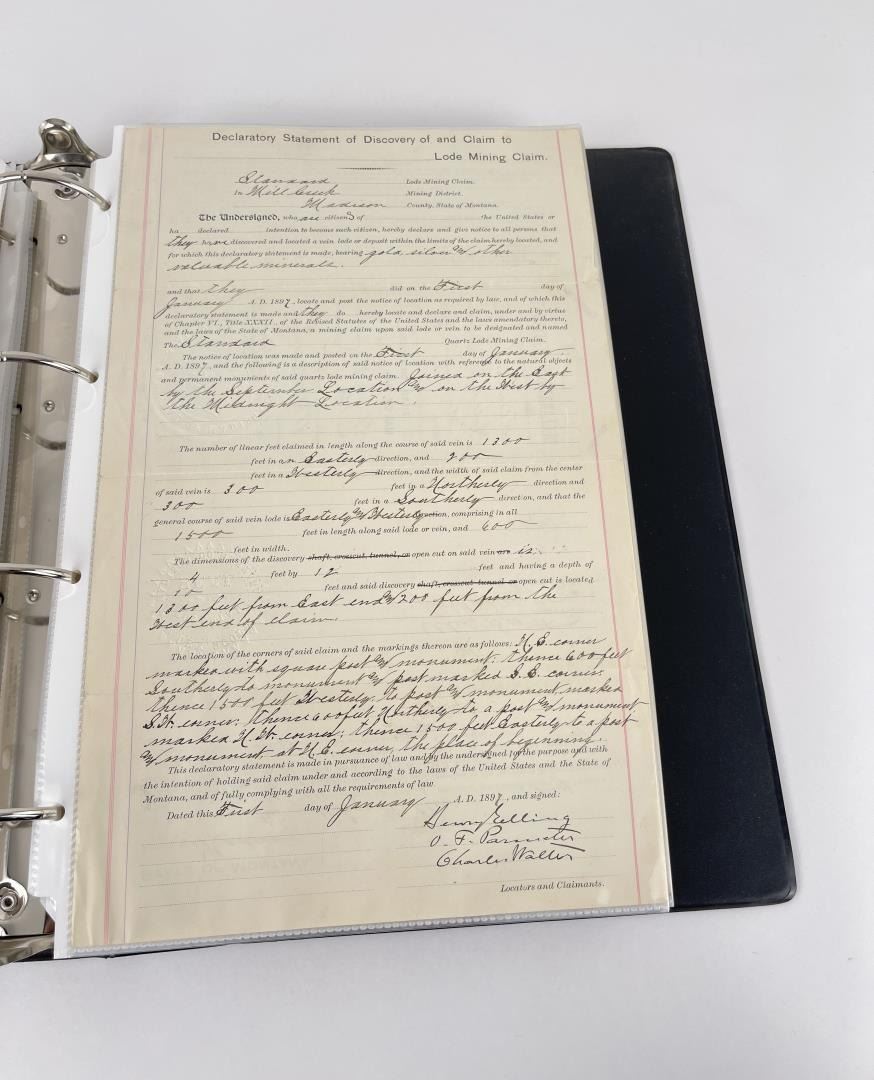 Declaratory Statement of Discovery of and Claim to
Lode Mining Claim.
Standard Lode Mining Claim.
in Mill Creek Mining District.
Madison County, State of Montana.
The Undersigned, who are citizens of the United States or
ha declared intention to become such citizen, hereby declare and give notice to all persons that
they have discovered and located a vein lode or deposit within the limits of the claim hereby located, and
for which this declaratory statement is made, bearing gold, silver and other
valuable minerals.
and that they did on the First day of
January A. D. 1897, locate and post the notice of location as required by law, and of which this
declaratory statement is made and they do hereby locate and declare and claim, under and by virtue
of Chapter VI., Title XXXII., of the Revised Statutes of the United States and the laws amendatory thereto,
and the laws of the State of Montana, a mining claim upon said lode or vein to be designated and named
The Standard Quartz Lode Mining Claim.
The notice of location was made and posted on the First day of January.
A. D. 1897, and the following is a description of said notice of location with reference to the natural objects
and permanent monuments of said quartz lode mining claim. Joined on the East
by the September Location and on the West by
the Midnight Location.
The number of linear feet claimed in length along the course of said vein is 1300
feet in an Easterly direction, and 200
feet in a Westerly direction, and the width of said claim from the center
of said vein is 300 feet in a Northerly direction and
300 feet in a Southerly direction, and that the
general course of said vein lode is Easterly and Westerly direction, comprising in all
1500 feet in length along said lode or vein, and 600
feet in width.
The dimensions of the discovery shaft, crosscut, tunnel, or open cut on said vein are is
4 feet by 12 feet and having a depth of
10 feet and said discovery shaft, crosscut tunnel or open cut is located
1300 feet from East end and 200 feet from the
West end of claim.
The location of the corners of said claim and the markings thereon are as follows: N. E. corner
marked with square post and monument; thence 600 feet
Southerly to monument and post marked S. E. corner;
thence 1500 feet Westerly; to post and monument marked
S. W. corner; thence 600 feet Northerly to a post and monument
marked N. W. corner; thence 1500 feet Easterly to a post
and monument, at N. E. corner, the place of beginning.
This declaratory statement is made in pursuance of law and by the undersigned for the purpose and with
the intention of holding said claim under and according to the laws of the United States and the State of
Montana, and of fully complying with all the requirements of law
Dated this First day of January A. D. 1897, and signed:
Henry Elling
O. F. Parmeter
Charles Waller
Locators and Claimants.